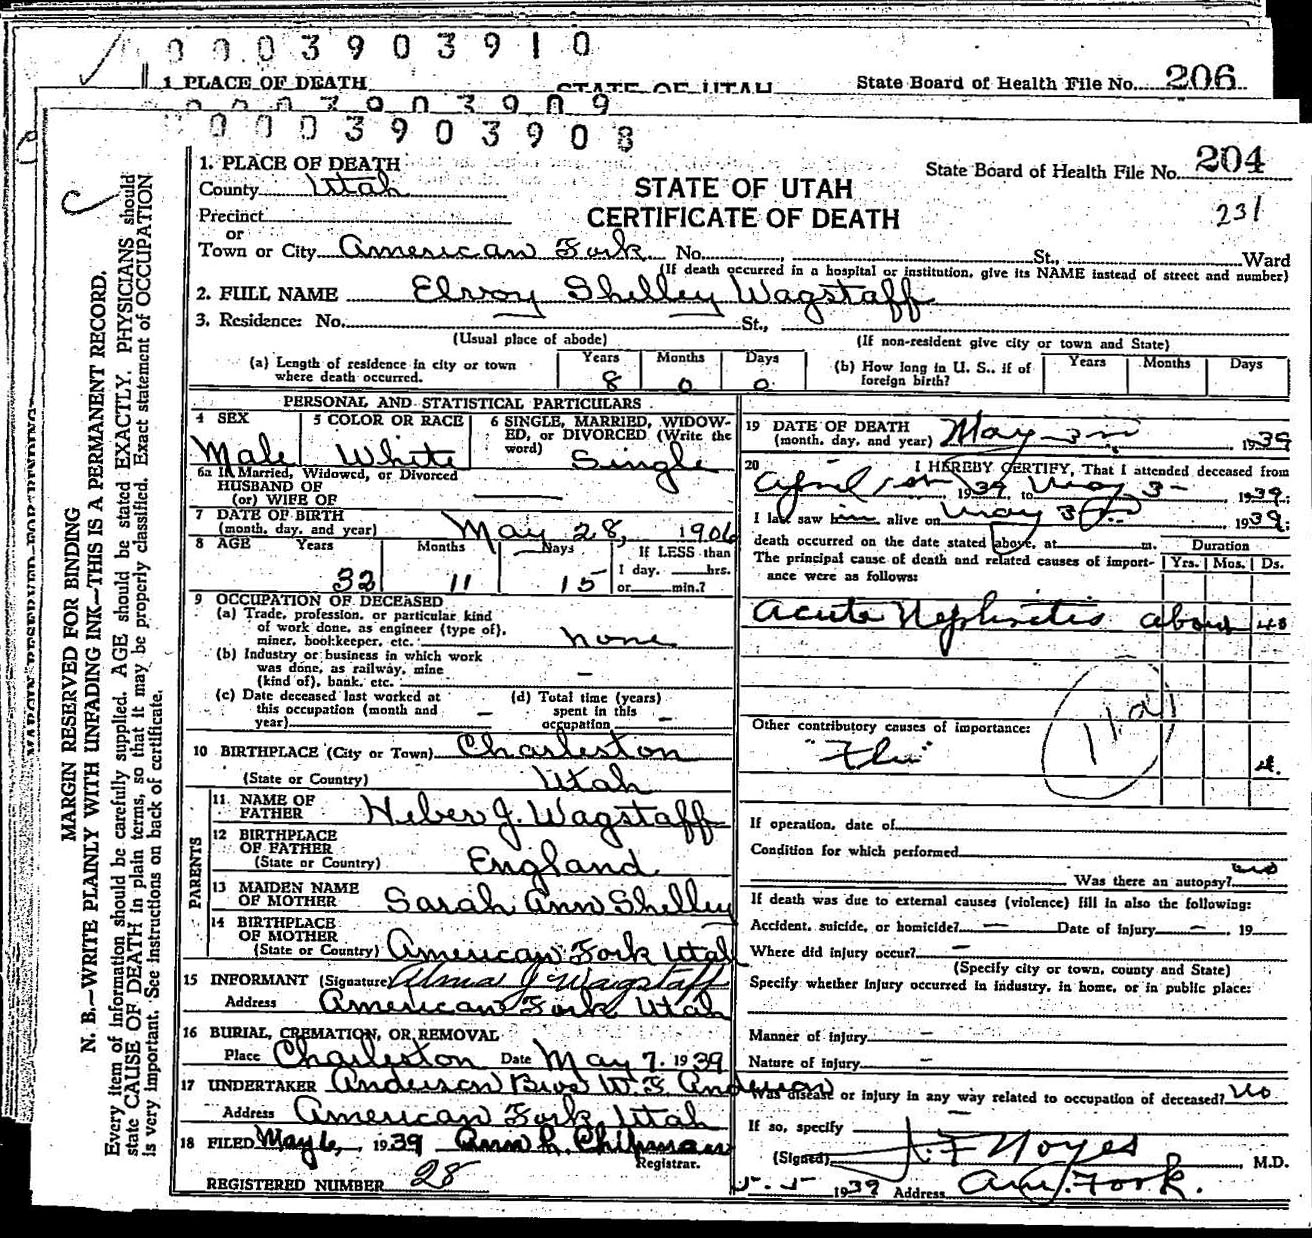 0003903910
1 PLACE OF DEATH
STATE OF UTAH
State Board of Health File No. 206
0003903909
0003903908
1. PLACE OF DEATH
County Utah
Precinct
or
Town or City American Fork No. St., Ward
(If death occurred in a hospital or institution, give its NAME instead of street and number)
STATE OF UTAH
CERTIFICATE OF DEATH
State Board of Health File No. 204
231
2. FULL NAME Elroy Shelley Wagstaff
3. Residence: No. St.,
(Usual place of abode)
(If non-resident give city or town and State)
(a) Length of residence in city or town
where death occurred.
Years Months Days
8 0 0
(b) How long in U. S., if of
foreign birth?
Years Months Days
PERSONAL AND STATISTICAL PARTICULARS
4 SEX
Male
5 COLOR OR RACE
White
6 SINGLE, MARRIED, WIDOW-
ED, or DIVORCED (Write the
word)
Single
6a If Married, Widowed, or Divorced
HUSBAND OF
(or) WIFE OF
7 DATE OF BIRTH
(month, day, and year) May 28, 1906
8 AGE Years Months Days
If LESS than
1 day, hrs.
or min.?
32 11 15
9 OCCUPATION OF DECEASED
(a) Trade, profession, or particular kind
of work done, as engineer (type of),
miner, bookkeeper, etc. none
(b) Industry or business in which work
was done, as railway, mine
(kind of), bank, etc. —
(c) Date deceased last worked at
this occupation (month and
year) —
(d) Total time (years)
spent in this
occupation —
10 BIRTHPLACE (City or Town) Charleston
(State or Country) Utah
PARENTS
11 NAME OF
FATHER Heber J. Wagstaff
12 BIRTHPLACE
OF FATHER
(State or Country) England
13 MAIDEN NAME
OF MOTHER Sarah Ann Shelley
14 BIRTHPLACE
OF MOTHER
(State or Country) American Fork Utah
15 INFORMANT (Signature) Alma J Wagstaff
Address American Fork Utah
16 BURIAL, CREMATION, OR REMOVAL
Place Charleston Date May 7, 1939
17 UNDERTAKER Anderson Bros W. F. Anderson
Address American Fork, Utah
18 FILED May 6, 1939 Ann L. Chipman
Registrar.
REGISTERED NUMBER 28
19 DATE OF DEATH
(month, day, and year) May 3 1939
20 I HEREBY CERTIFY, That I attended deceased from
April 1939, to May 3- 1939;
I last saw him alive on May 3 1939;
death occurred on the date stated above, at m.
The principal cause of death and related causes of import-
ance were as follows:
Duration
Yrs. Mos. Ds.
Acute Nephritis about
Other contributory causes of importance:
"Flu"
If operation, date of
Condition for which performed
Was there an autopsy? no
If death was due to external causes (violence) fill in also the following:
Accident, suicide, or homicide? — Date of injury — , 19
Where did injury occur? —
(Specify city or town, county and State)
Specify whether injury occurred in industry, in home, or in public place:
Manner of injury —
Nature of injury —
Was disease or injury in any way related to occupation of deceased? No
If so, specify —
(Signed) Noyes M.D.
1939 Address Am. Fork.
MARGIN RESERVED FOR BINDING
N. B.—WRITE PLAINLY WITH UNFADING INK—THIS IS A PERMANENT RECORD.
Every item of information should be carefully supplied. AGE should be stated EXACTLY. PHYSICIANS should
state CAUSE OF DEATH in plain terms, so that it may be properly classified. Exact statement of OCCUPATION
is very important. See instructions on back of certificate.
MARGIN RESERVED FOR BINDING